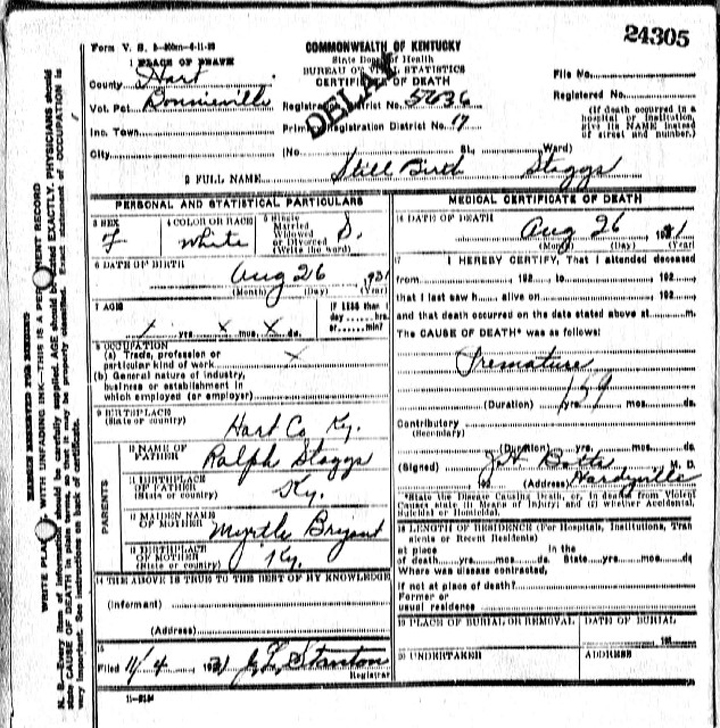 24305
Form V. S.
COMMONWEALTH OF KENTUCKY
State Dept. of Health
BUREAU OF VITAL STATISTICS
CERTIFICATE OF DEATH
DELAY
1 PLACE OF DEATH
County Hart
Vot. Pct. Bonnieville
Inc. Town
City
Registration District No. 5636
Primary Registration District No. 17
(No. St., Ward)
File No.
Registered No.
(If death occurred in a
hospital or institution,
give its NAME instead
of street and number.)
2 FULL NAME Still Birth Staggs
PERSONAL AND STATISTICAL PARTICULARS
3 SEX
F
4 COLOR OR RACE
white
5 Single
Married
Widowed
or Divorced
(Write the word)
S.
6 DATE OF BIRTH
Aug 26 931
(Month) (Day) (Year)
7 AGE
x yrs. x mos. x ds.
IF LESS than 1
day hrs.
or min?
8 OCCUPATION
(a) Trade, profession or
particular kind of work x
(b) General nature of industry,
business or establishment in
which employed (or employer)
9 BIRTHPLACE
(State or country)
Hart Co Ky.
PARENTS
10 NAME OF
FATHER
Ralph Staggs
11 BIRTHPLACE
OF FATHER
(State or country)
Ky.
12 MAIDEN NAME
OF MOTHER
Myrtle Bryant
13 BIRTHPLACE
OF MOTHER
(State or country)
Ky.
14 THE ABOVE IS TRUE TO THE BEST OF MY KNOWLEDGE
(Informant)
(Address)
15
Filed 11/4 1931 Stanton
Registrar
MEDICAL CERTIFICATE OF DEATH
16 DATE OF DEATH
Aug 26, 1931
(Month) (Day) (Year)
17 I HEREBY CERTIFY, That I attended deceased
from 192 to 192
that I last saw h alive on , 192
and that death occurred on the date stated above at m.
The CAUSE OF DEATH* was as follows:
Premature
159
(Duration) yrs. mos. ds.
Contributory
(Secondary)
(Duration) yrs. mos. ds.
(Signed) M. D.
192 (Address) Hardyville
*State the Disease Causing Death, or, in deaths from Violent
Causes state (1) Means of Injury; and (2) whether Accidental,
Suicidal or Homicidal.
18 LENGTH OF RESIDENCE (For Hospitals, Institutions, Tran
sients or Recent Residents)
At place In the
of death yrs. mos. ds. State yrs. mos. ds
Where was disease contracted,
if not at place of death?
Former or
usual residence
19 PLACE OF BURIAL OR REMOVAL
DATE OF BURIAL
20 UNDERTAKER
ADDRESS
MARGIN RESERVED FOR BINDING